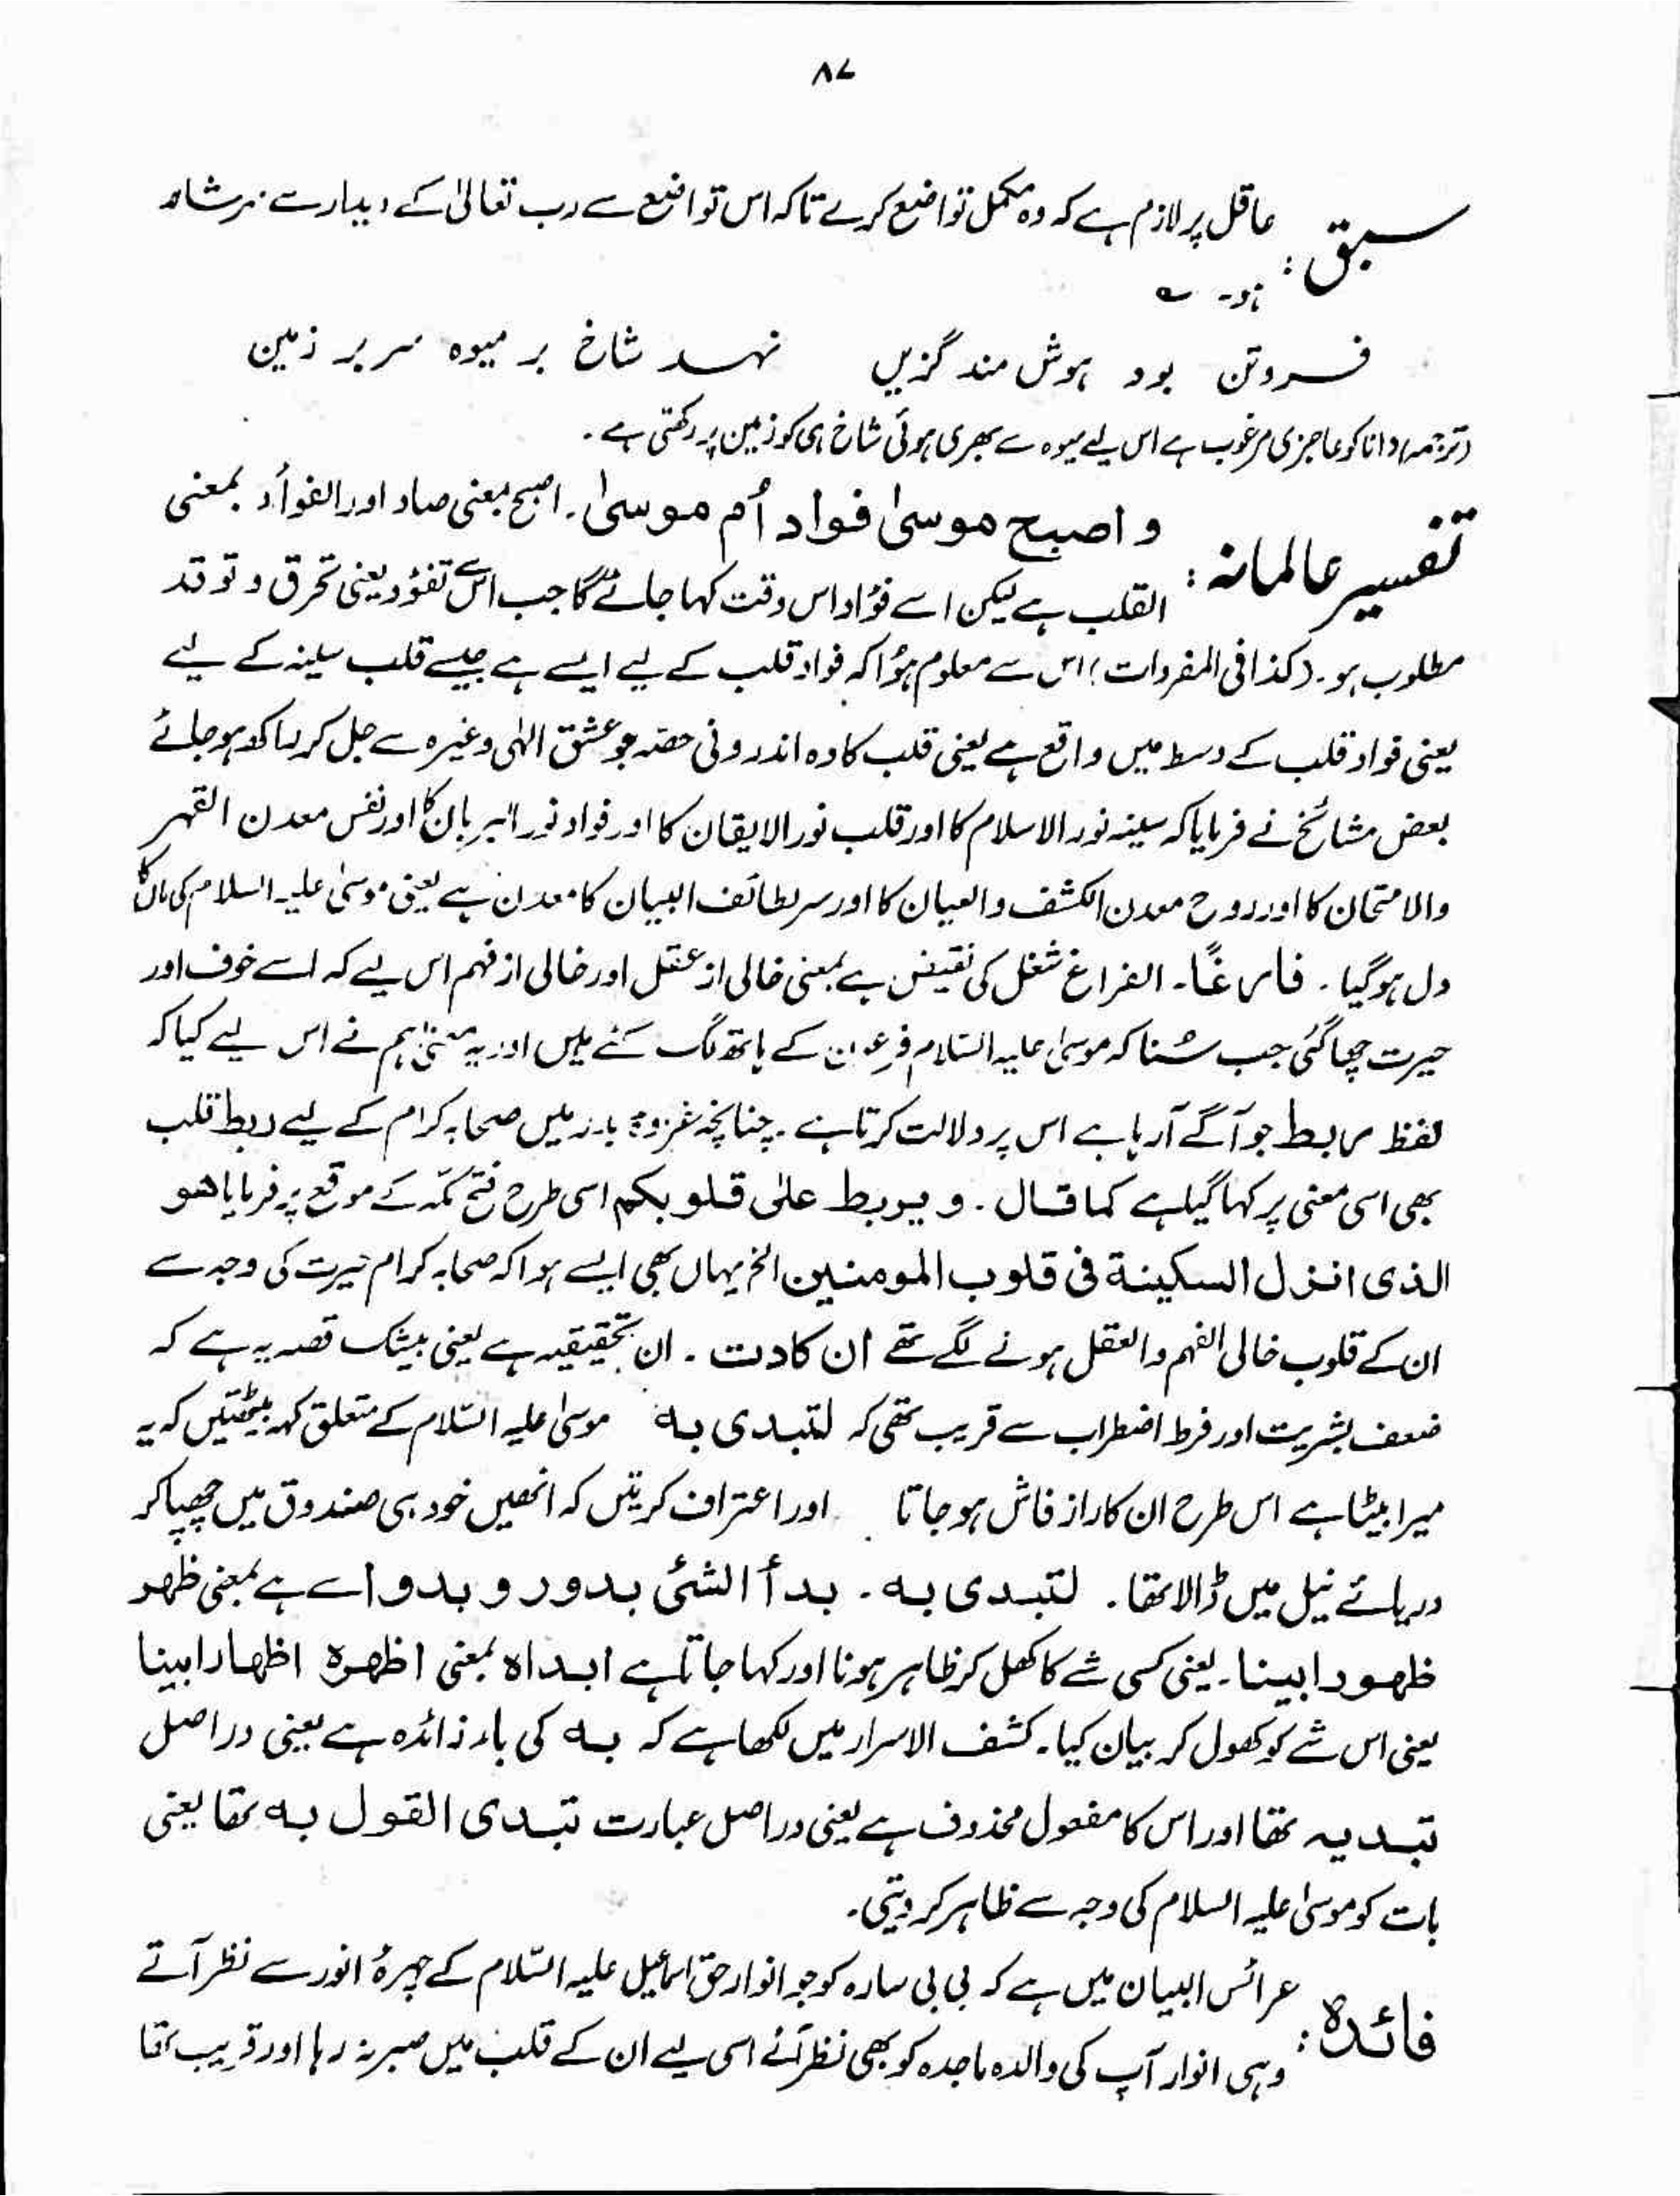 ۸۷
سبق: عاقل پر لازم ہے کہ وہ مکمل تواضع کرے تاکہ اس تواضع سے رب تعالیٰ کے دیدار سے سرشار
ہو۔ ؎
فروتن بود ہوش مند گزیں نہد شاخ بر میوہ سر بر زمین
(ترجمہ) دانا کو عاجزی مرغوب ہے اس لیے میوہ سے بھری ہوئی شاخ ہی کو زمین پر رکھتی ہے۔
تفسیر عالمانہ: و اصبح موسیٰ فواد اُم موسیٰ۔ اصبح بمعنی صاد اور الفواُد بمعنی
القلب ہے لیکن اسے فؤاد اس وقت کہا جائے گا جب اس سے تفؤد یعنی تحرق و توقد
مطلوب ہو۔ (کذا فی المفردات) اس سے معلوم ہؤا کہ فواد قلب کے لیے ایسے ہے جیسے قلب سینہ کے لیے
یعنی فواد قلب کے وسط میں واقع ہے یعنی قلب کا وہ اندرونی حصّہ جو عشق الٰہی وغیرہ سے جل کر راکھ ہو جائے
بعض مشائخ نے فرمایا کہ سینہ نور الاسلام کا اور قلب نور الایقان کا اور فواد نور البرہان کا اور نفس معدن القہر
والامتحان کا اور روح معدن الکشف والعیان کا اور سر لطائف البیان کا معدن ہے یعنی موسیٰ علیہ السلام کی ماں کا
دل ہو گیا۔ فارغًا۔ الفراغ شغل کی نقیض ہے بمعنی خالی از عقل اور خالی از فہم اس لیے کہ اسے خوف اور
حیرت چھا گئی جب سُنا کہ موسیٰ علیہ السّلام فرعون کے ہاتھ لگ گئے ہیں اور یہ معنیٰ ہم نے اس لیے کیا کہ
لفظ ربط جو آگے آ رہا ہے اس پر دلالت کرتا ہے۔ چنانچہ غزوۂ بدر میں صحابہ کرام کے لیے ربط قلب
بھی اسی معنی پر کہا گیا ہے کما قال۔ و یربط علیٰ قلوبکم اسی طرح فتح مکّہ کے موقع پر فرمایا ھو
الذی انزل السکینة فی قلوب المومنین الخ یہاں بھی ایسے ہوا کہ صحابہ کرام حیرت کی وجہ سے
ان کے قلوب خالی الفہم والعقل ہونے لگے تھے ان کادت۔ ان تحقیقیہ ہے یعنی بیشک قصہ یہ ہے کہ
ضعف بشریت اور فرط اضطراب سے قریب تھی کہ لتبدی بہ موسیٰ علیہ السّلام کے متعلق کہہ بیٹھتیں کہ یہ
میرا بیٹا ہے اس طرح ان کا راز فاش ہو جاتا اور اعتراف کرتیں کہ انھیں خود ہی صندوق میں چھپا کر
دریائے نیل میں ڈالا تھا۔ لتبدی بہ۔ بدأ الشئ بدور و بدوا سے ہے بمعنی ظھر
ظھورا بینا۔ یعنی کسی شے کا کھل کر ظاہر ہونا اور کہا جاتا ہے ابداہ بمعنی اظھرہ اظھارا بینا
یعنی اس شے کو کھول کر بیان کیا۔ کشف الاسرار میں لکھا ہے کہ بہ کی باء زائدہ ہے یعنی دراصل
تبدیہ تھا اور اس کا مفعول محذوف ہے یعنی دراصل عبارت تبدی القول بہ تھا یعنی
بات کو موسیٰ علیہ السلام کی وجہ سے ظاہر کر دیتی۔
فائدہ: عرائس البیان میں ہے کہ بی بی سارہ کو جو انوار حق اسماعیل علیہ السّلام کے چہرۂ انور سے نظر آتے
وہی انوار آپ کی والدہ ماجدہ کو بھی نظر آئے اسی لیے ان کے قلب میں صبر نہ رہا اور قریب تھا